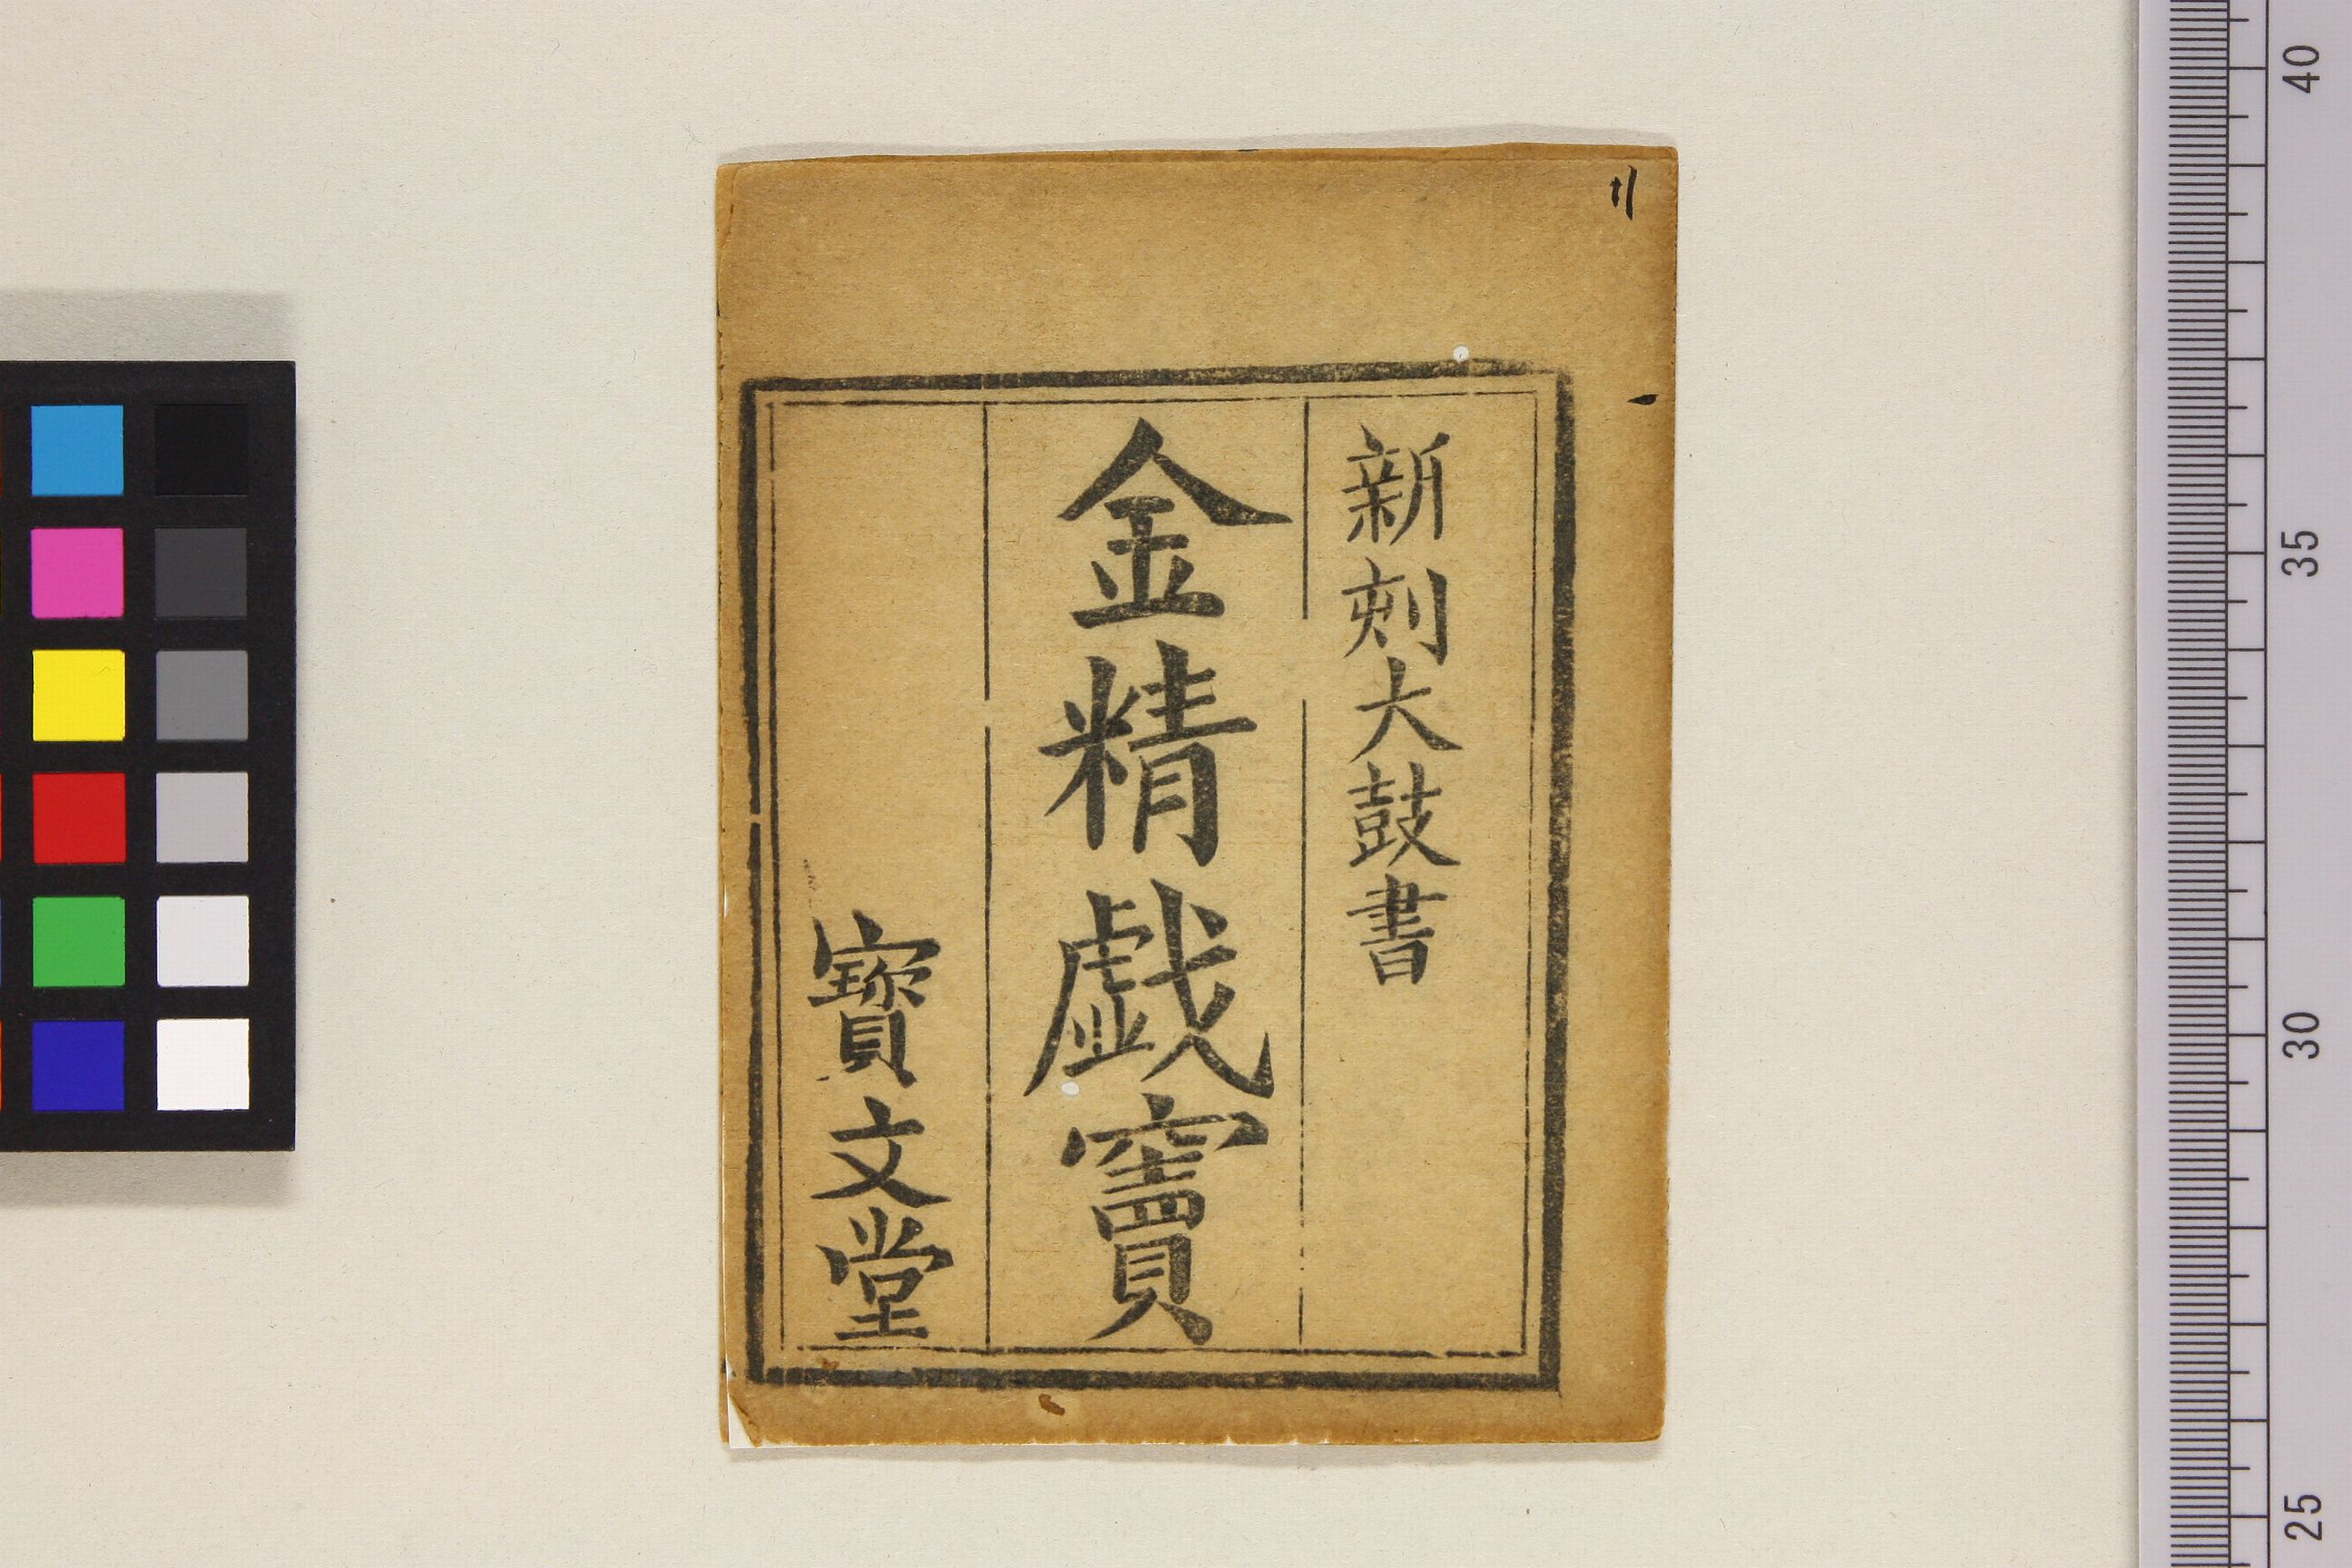 11
新刻大鼓書
金精戯竇
寳文堂
40
35
30
25